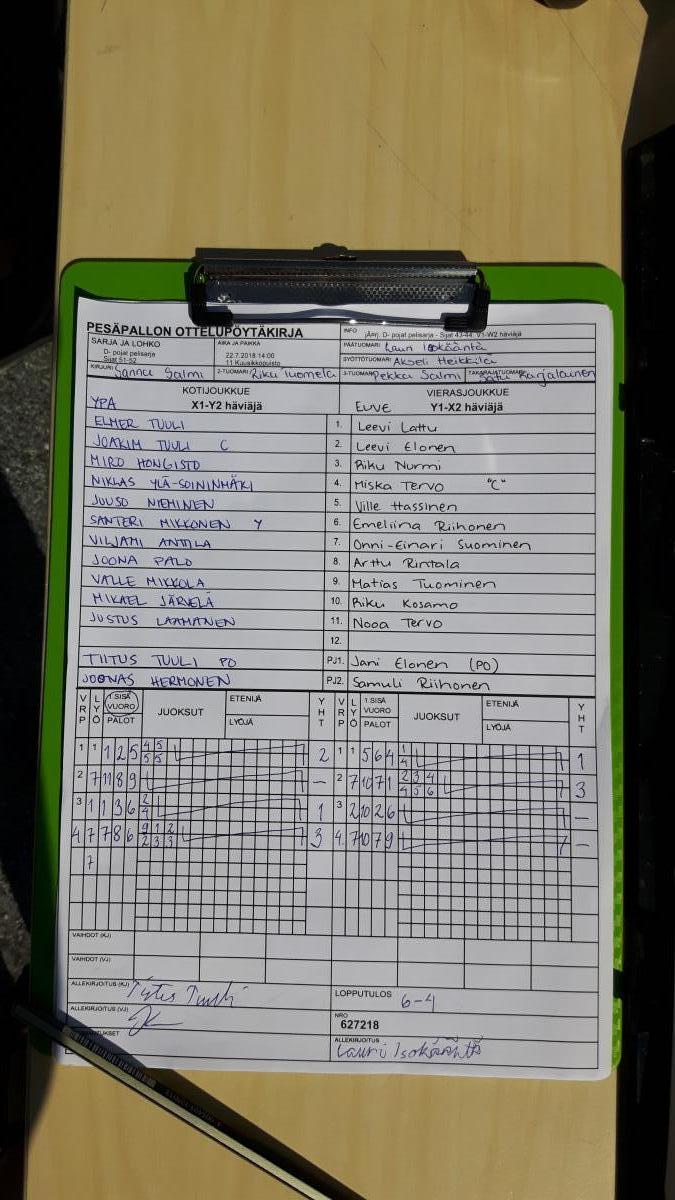 PESÄPALLON OTTELUPÖYTÄKIRJA
INFO jÄarj. D- pojat pelisarja - Sijat 43-44: V1-W2 häviäjä
SARJA JA LOHKO
D- pojat pelisarja
Sijat 51-52
AIKA JA PAIKKA
22.7.2018 14:00
11 Kuusikkopuisto
PÄÄTUOMARI Lauri Isokääntä
SYÖTTÖTUOMARI Akseli Heikkilä
KIRJURI Sannu Salmi 2-TUOMARI Riku Tuomela 3-TUOMARI Pekka Salmi TAKARAJATUOMARI Satu Karjalainen
KOTIJOUKKUE VIERASJOUKKUE
YPA X1-Y2 häviäjä EUVE Y1-X2 häviäjä
ELMER TUULI 1. Leevi Lattu
JOAKIM TUULI C 2. Leevi Elonen
MIRO HONGISTO 3. Riku Nurmi
NIKLAS YLÄ-SOININMÄKI 4. Miska Tervo "C"
JUUSO NIEMINEN 5. Ville Hassinen
SANTERI MIKKONEN Y 6. Emeliina Riihonen
VILJAMI ANTTILA 7. Onni-Einari Suominen
JOONA PALO 8. Arttu Rintala
VALLE MIKKOLA 9. Matias Tuominen
MIKAEL JÄRVELÄ 10. Riku Kosamo
JUSTUS LAAMANEN 11. Nooa Tervo
12.
TIITUS TUULI PO PJ1. Jani Elonen (PO)
JOONAS HERMONEN PJ2. Samuli Riihonen
VRP LYÖ 1 SISÄ VUORO PALOT JUOKSUT ETENIJÄ LYÖJÄ YHT VRP LYÖ 1 SISÄ VUORO PALOT JUOKSUT ETENIJÄ LYÖJÄ YHT
1 1 1 2 5 4/5 5/5 2 1 1 5 6 4 1/4 1
2 7 11 8 9 – 2 7 10 7 1 2/4 3/5 4/6 3
3 1 1 3 6 2/4 1 3 2 10 2 6 –
4 7 7 8 6 9/2 1/3 2/3 3 4. 7 10 7 9 –
7
VAIHDOT (KJ)
VAIHDOT (VJ)
ALLEKIRJOITUS (KJ) Tiitus Tuuli
LOPPUTULOS 6-4
ALLEKIRJOITUS (VJ)
NRO
627218
ALLEKIRJOITUS
Lauri Isokääntä